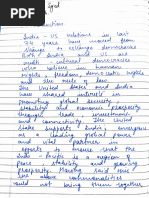 India - US relations in last
74 years has moved from
strange to estrange democracies
Both India and US are
multi cultural democracies
who believes in human
rights & freedom, democratic rights
and the rule of law.
The United States and India
have shared interests
promoting global security
stability and economic prosperity
through trade investments
and connectivity. The United
state supports India's emergence
as a leading global power
and vital partner in
efforts to ensure that the
Indo Pacific is a region of
peace stability and growing
prosperity. Having said that
the above commonalities
could not bring them together